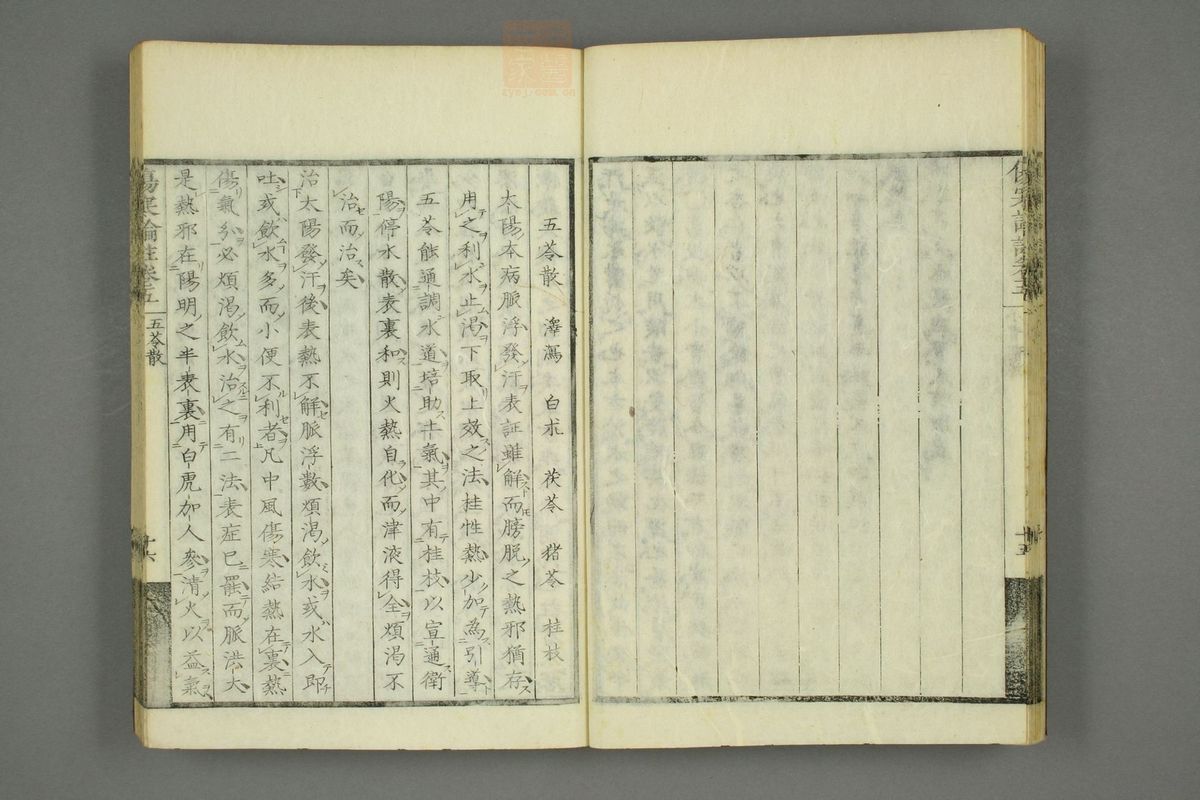 十五
五苓散 澤瀉 白朮 茯苓 猪苓 桂枝
太陽本病脈浮發汗表証雖解而膀胱之熱邪猶存
用之利水止渴下取上效之法桂性熱少加為引導
五苓能通調水道培助土氣其中有桂枝以宣通衛
陽停水散表裏和則火熱自化而津液得全煩渴不
治而治矣
治太陽發汗後表熱不解脈浮數煩渴飲水或水入即
吐或飲水多而小便不利者凡中風傷寒結熱在裏熱
傷氣分必煩渴飲水治之有二法表症已罷而脈洪大
是熱邪在陽明之半表裏用白虎加人參清火以益氣
傷寒論註卷五
五苓散
十六